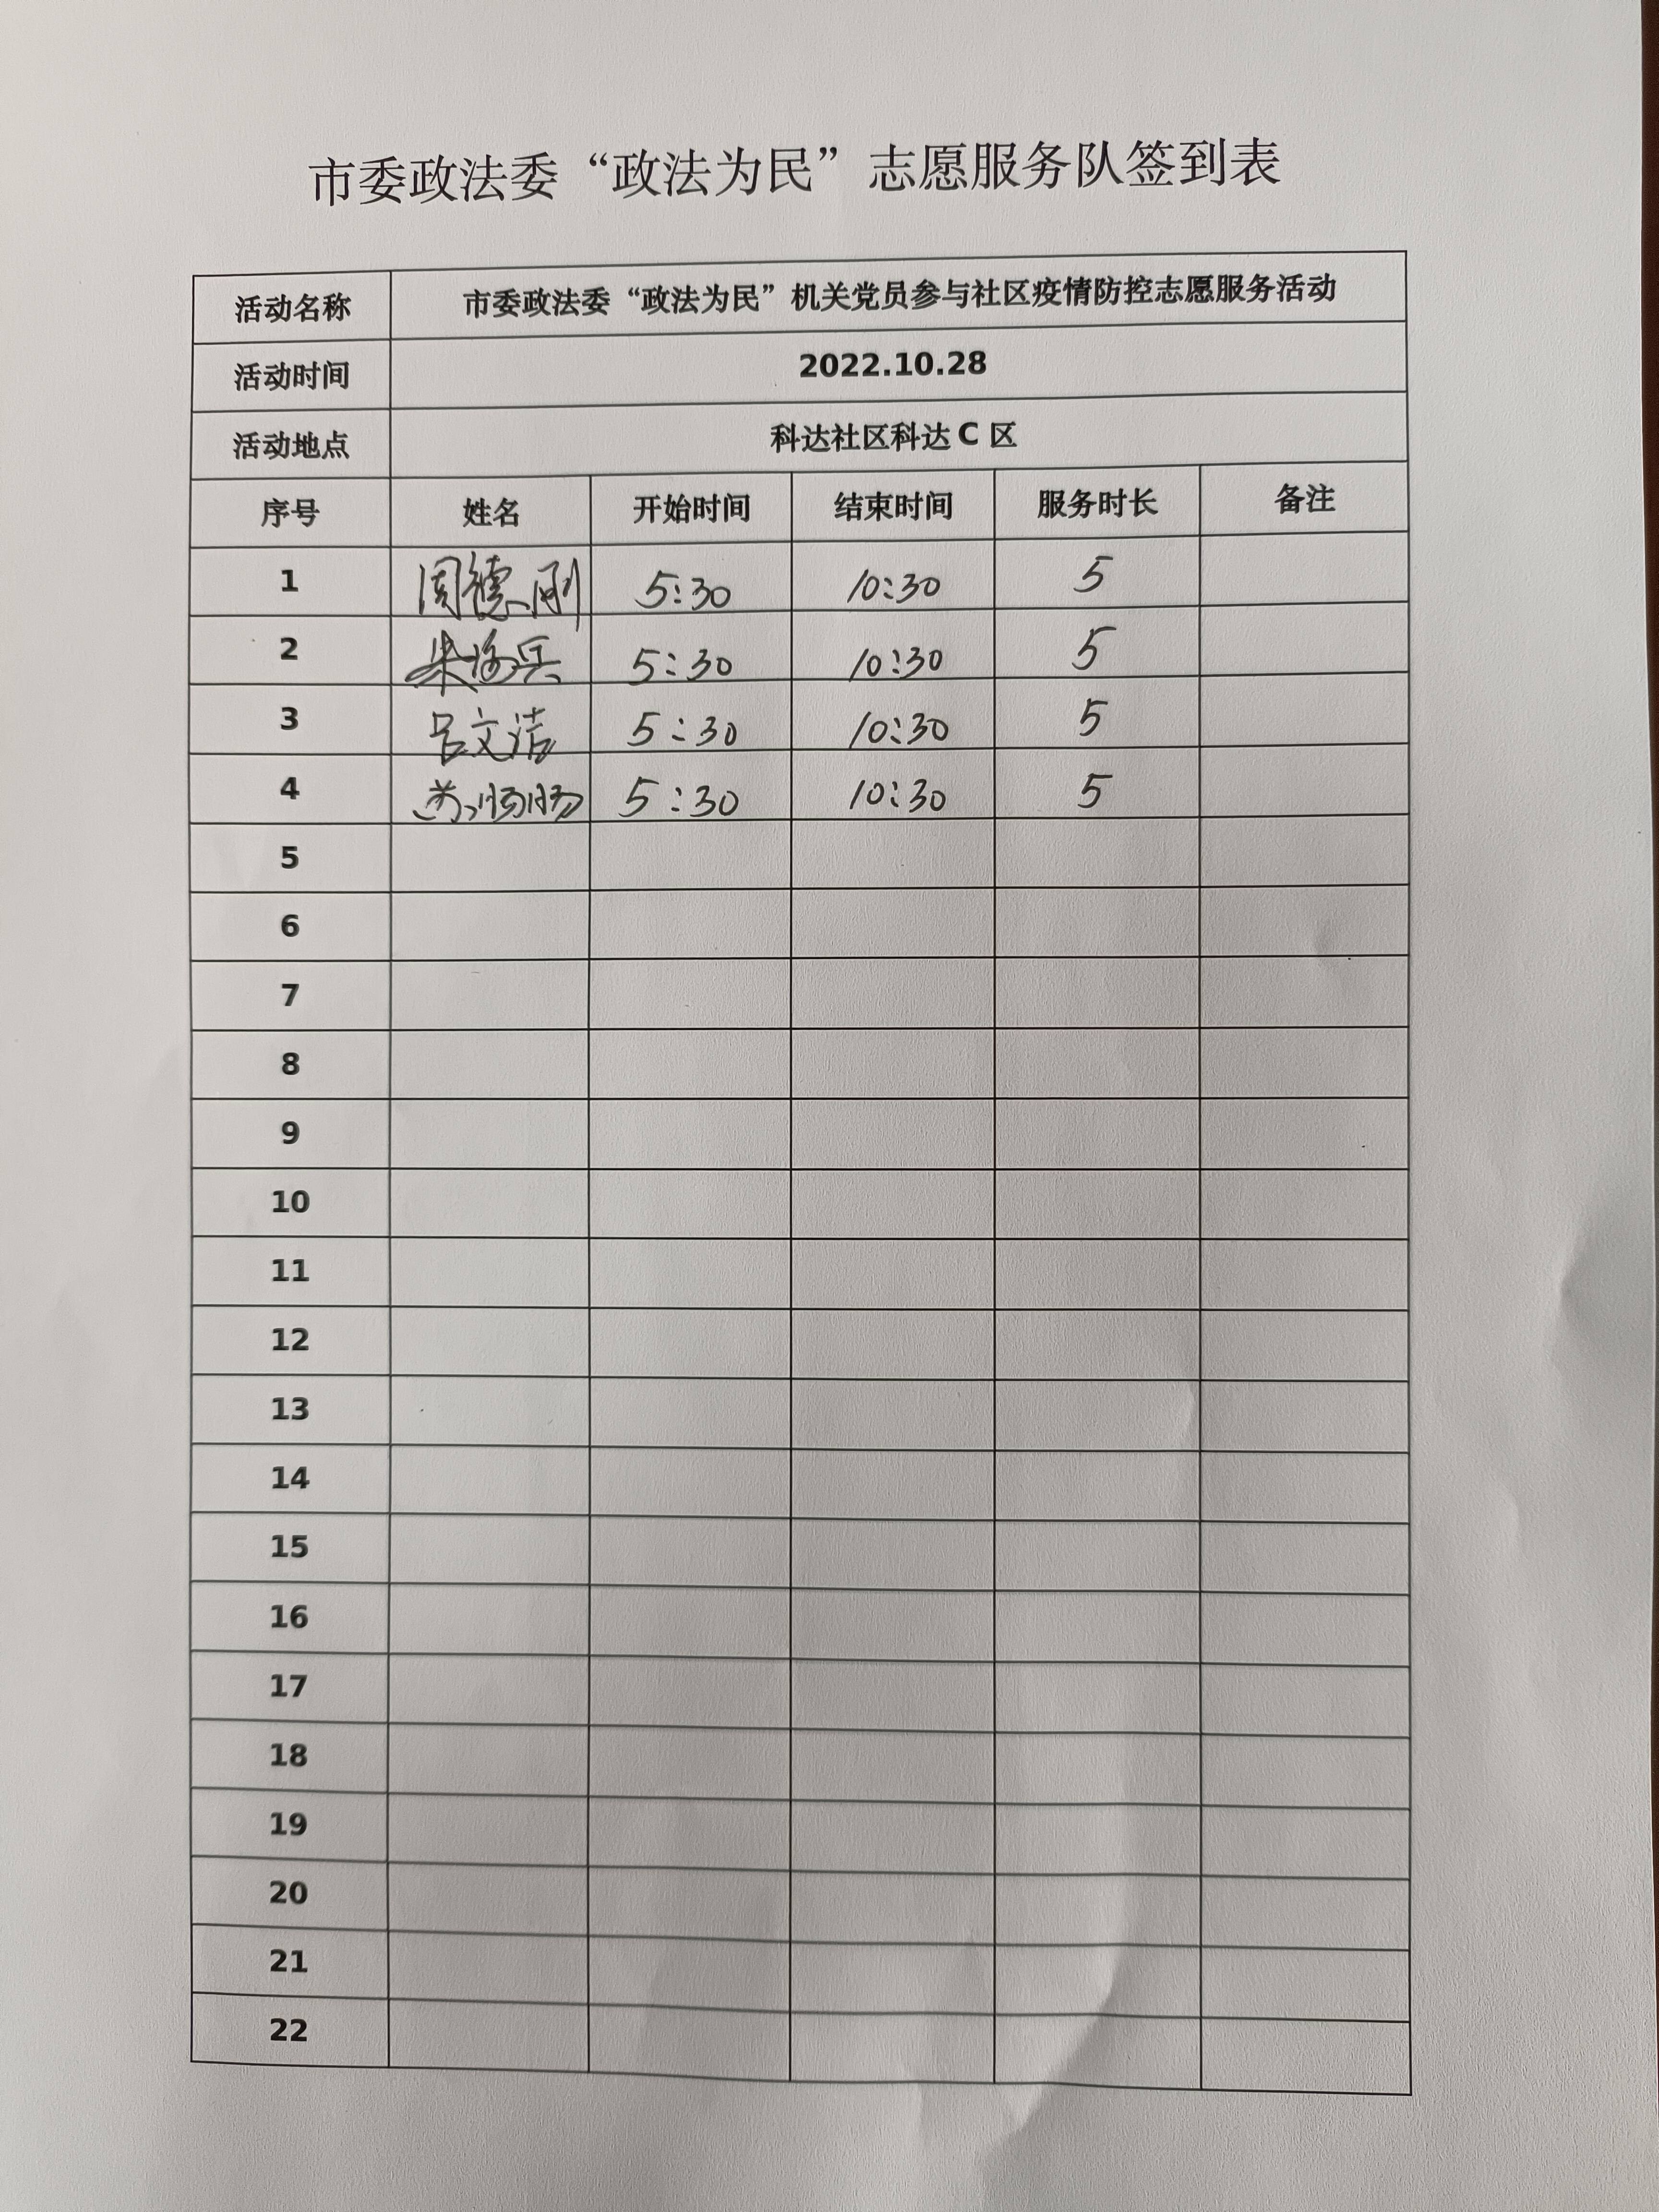 市委政法委“政法为民”志愿服务队签到表
活动名称 市委政法委“政法为民”机关党员参与社区疫情防控志愿服务活动
活动时间 2022.10.28
活动地点 科达社区科达 C 区
序号 姓名 开始时间 结束时间 服务时长 备注
1 周德刚 5:30 10:30 5
2 5:30 10:30 5
3 吕文洁 5:30 10:30 5
4 5:30 10:30 5
5
6
7
8
9
10
11
12
13
14
15
16
17
18
19
20
21
22